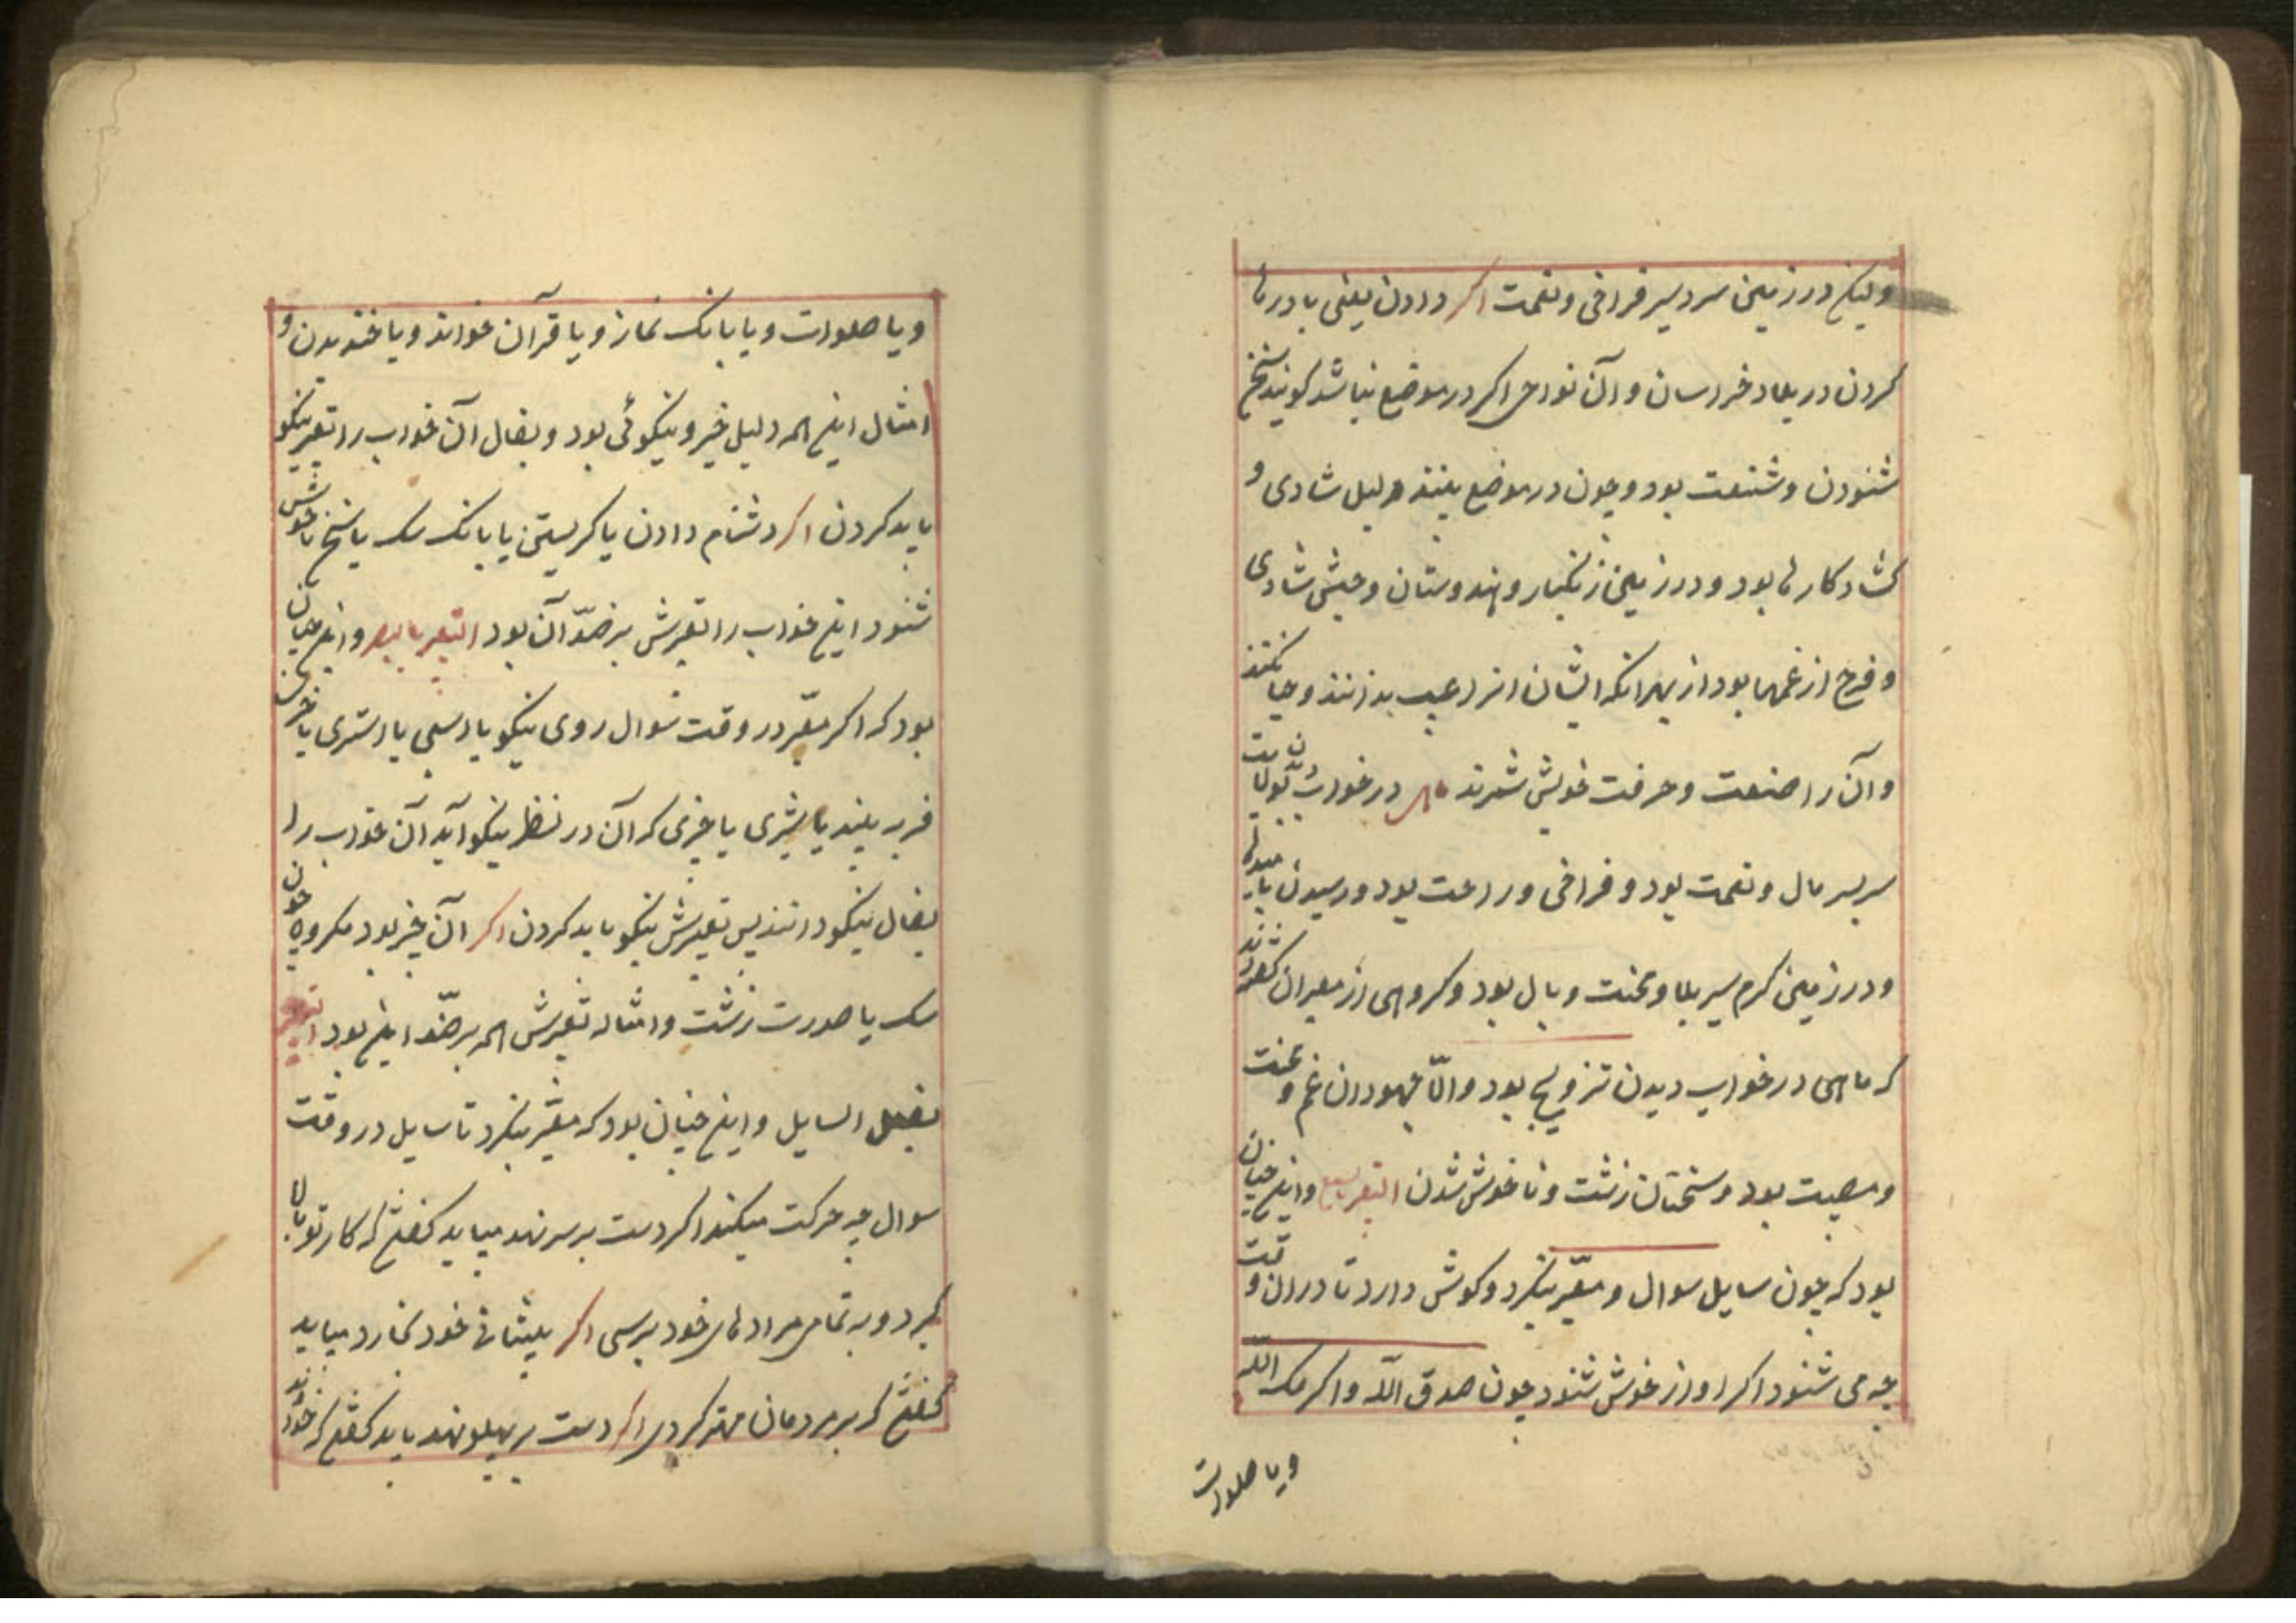 ولیکن در زمین سردسیر فراخی و نعمت اکر دادن یعنی با درها
کردن در بلاد خراسان و آن نواحی اکر در موضع نباشد کویند سخن
شنودن و شنعت بود و چون در موضع بینند دلیل شادی و
کشاد کارها بود و در زمین زنکبار و هندوستان و حبش شادی
و فرح از غمها بود از بهر آنکه ایشان انرا عیب ندانند و حیا نکنند
و آن را صنعت و حرفت خویش شمرند ماهی در خواب ولایت
سربسر مال و نعمت بود و فراخی و راحت بود و رسیدن بامیدها
و در زمین کرم سیر بلا و محنت و بال بود و کروهی از معبران کفته‌اند
که ماهی در خواب دیدن تزویج بود و الا جهودان غم و محنت
و مصیبت بود و سخنان زشت و ناخوش شدن التعبیر بالسمع و این چنان
بود که چون سایل سوال و معبر بنکرد و کوش دارد تا در ان وقت
چه می شنود اکر اواز خوش شنود چون صدق الله و اکرمک الله
ویا صلوات
ویا صلوات ویا بانک نماز ویا قرآن خواند ویا خندیدن و
امثال این همه دلیل خیر و نیکوئی بود و بفال آن خواب را تعبیر نیکو
باید کردن اکر دشنام دادن یا کریستن یا بانک سک یا سخن ناخوش
شنود این خواب را تعبیرش بر ضد آن بود التعبیر بالبصر و این چنان
بود که اکر معبر در وقت سوال روی نیکو یا اسبی یا استری یا خری
فربه بیند یا شیری یا چیزی که آن در نظر نیکو آید آن خواب را
بفال نیکو دانند پس تعبیرش نیکو باید کردن اکر آن چیز بود مکروه چون
سک یا صورت زشت و امثاله تعبیرش همه بر ضد این بود التعبیر
بفعل السایل و این چنان بود که معبر بنکرد تا سایل در وقت
سوال چه حرکت میکند اکر دست بر سر نهد میباید کفتن که کار تو بالا
کیرد و به تمامی مرادهای خود برسی اکر پیشانی خود نخارد میباید
کفتن که بر مردمان مهتر کردی اکر دست بر پهلو نهد باید کفتن که